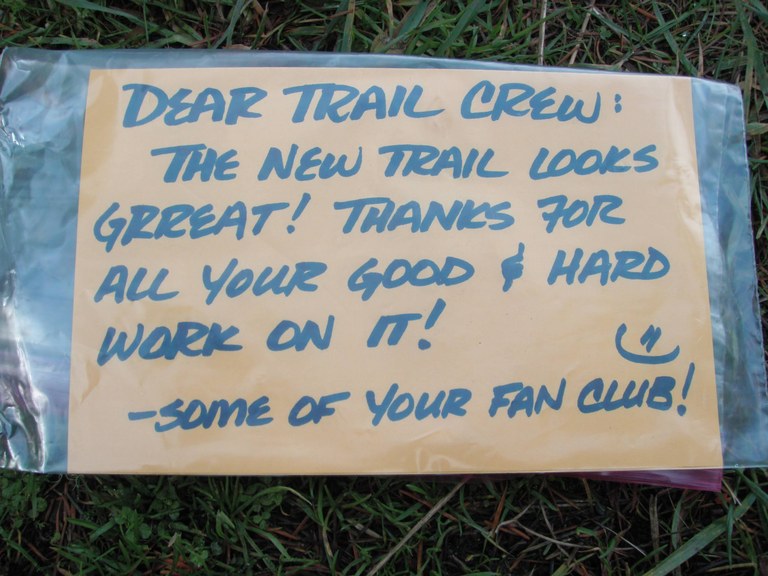 DEAR TRAIL CREW:
THE NEW TRAIL LOOKS
GRREAT! THANKS FOR
ALL YOUR GOOD & HARD
WORK ON IT!
-SOME OF YOUR FAN CLUB!